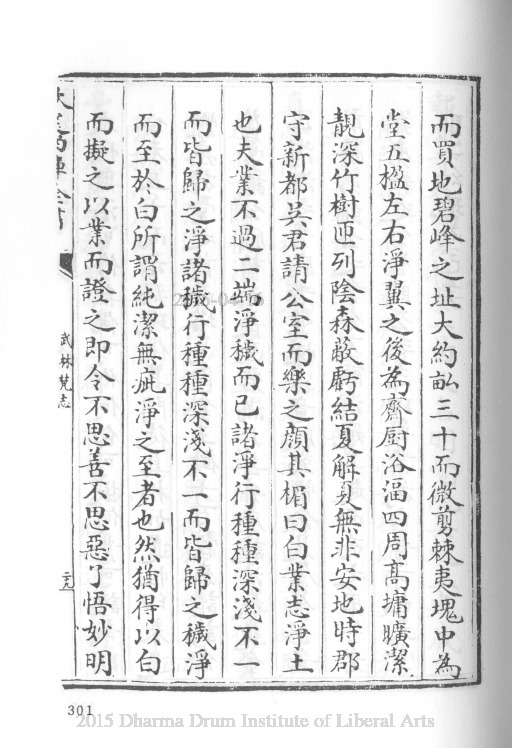 而買地碧峰之址大約畝三十而微剪棘夷塊中為
堂五楹左右淨翼之後為齋厨浴湢四周髙墉曠潔
靚深竹樹匝列陰森蔽虧結夏解夏無非安地時郡
守新都吳君請公室而樂之顔其楣曰白業志淨土
也夫業不過二端淨穢而已諸淨行種種深淺不一
而皆歸之淨諸穢行種種深淺不一而皆歸之穢淨
而至於白所謂純潔無疵淨之至者也然猶得以白
而擬之以業而證之即令不思善不思惡了悟妙明
武林梵志
301
2015 Dharma Drum Institute of Liberal Arts